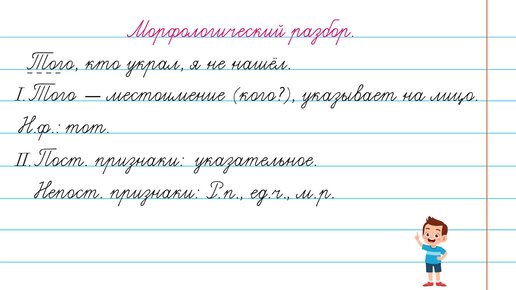 Морфологический разбор.
Того, кто украл, я не нашёл.
I. Того — местоимение (кого?), указывает на лицо.
Н.ф.: тот.
II. Пост. признаки: указательное.
Непост. признаки: Р.п., ед.ч., м.р.